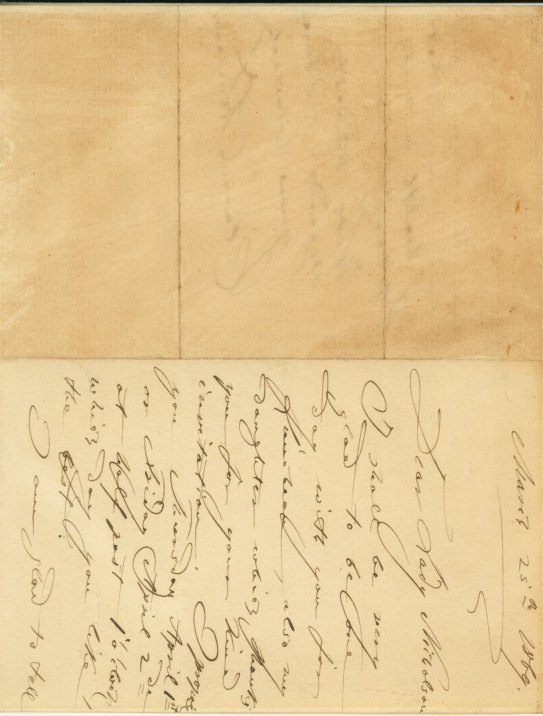 March 25th
Dear Lady Nicholson
I shall be very
glad to be one
day with you for
luncheon, also my
daughter which thanks
you for your kind
invitation. I propose
you Thursday April 1st
or Friday April 2d
at half past 1 o'clock
which day you like
the best.
I am glad to tell